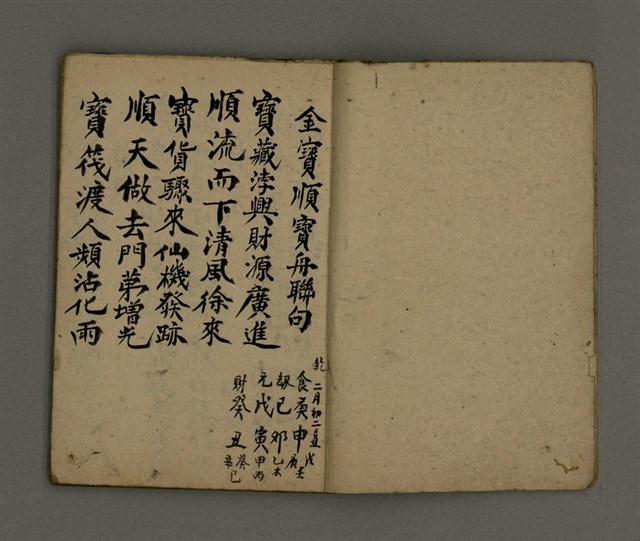 金寶順寶舟聯句
寶藏浡興財源廣進
順流而下清風徐來
寶貨驟來仙機發跡
順天做去門苐增光
寶筏渡人頻沾化雨
乾 二月初二丑
食庚申戊庚壬
刼己卯乙
元戊寅甲丙
財癸丑癸辛己